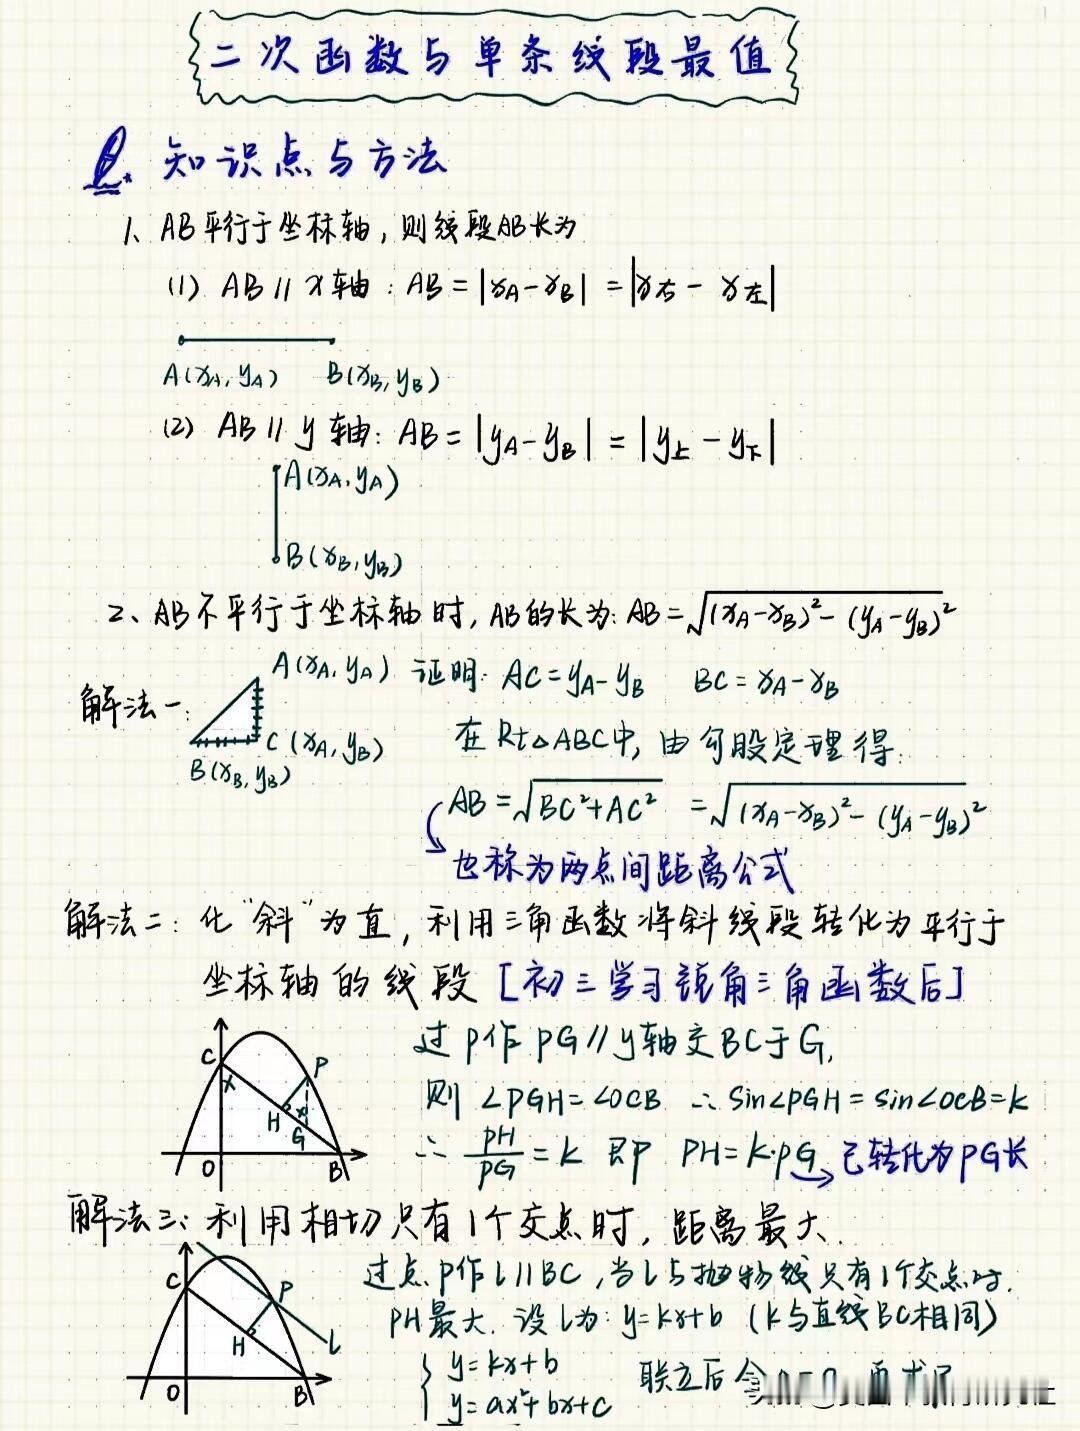 二次函数与单条线段最值
知识点与方法
1、AB平行于坐标轴，则线段AB长为
(1) AB // x轴：AB = |xA-xB| = |x右 - x左|
A(xA, yA) B(xB, yB)
(2) AB // y轴：AB = |yA-yB| = |y上 - y下|
A(xA, yA)
B(xB, yB)
2、AB不平行于坐标轴时，AB的长为：AB=√(xA-xB)²-(yA-yB)²
解法一：
A(xA, yA)
C(xA, yB)
B(xB, yB)
证明：AC=yA-yB BC=xA-xB
在Rt△ABC中，由勾股定理得：
AB=√BC²+AC² =√(xA-xB)²-(yA-yB)²
也称为两点间距离公式
解法二：化“斜”为直，利用三角函数将斜线段转化为平行于
坐标轴的线段 [初三学习锐角三角函数后]
C P H G O B x x
过P作PG//y轴交BC于G,
则∠PGH=∠OCB ∴sin∠PGH=sin∠OCB=k
∴PH/PG=k 即 PH=k·PG 已转化为PG长
解法三：利用相切只有1个交点时，距离最大.
C P H O B l
过点P作l//BC，当l与抛物线只有1个交点时.
PH最大. 设l为：y=kx+b (k与直线BC相同)
{ y=kx+b
y=ax²+bx+c
联立后令